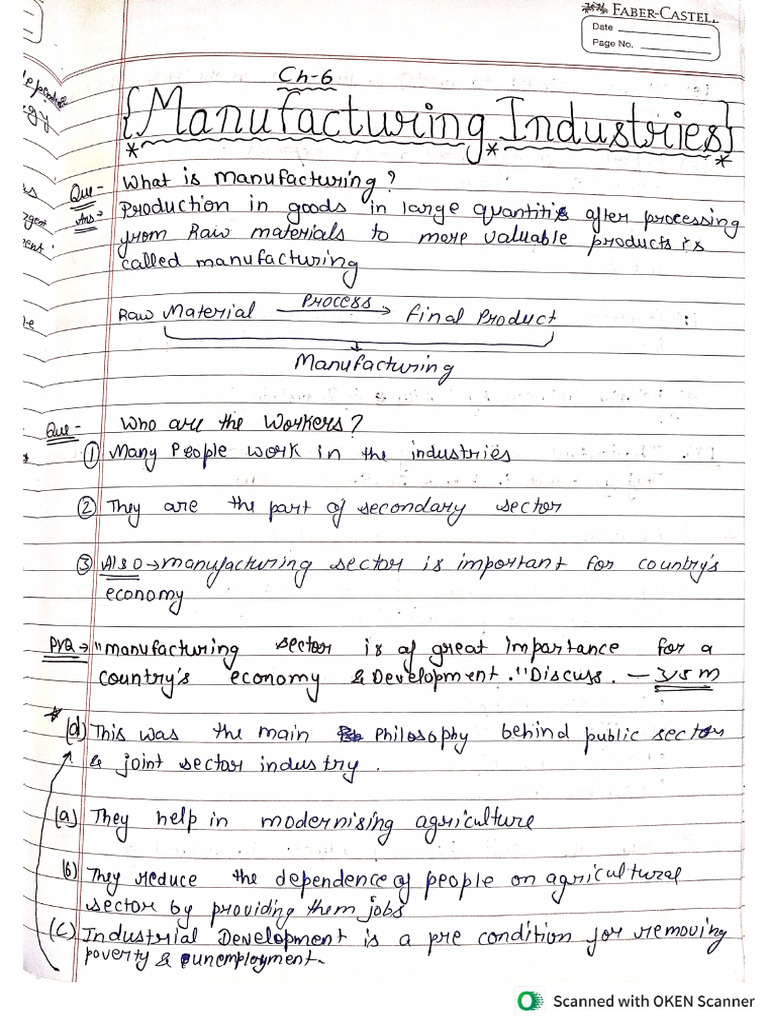 FABER-CASTELL
Date
Page No.
Ch-6
{Manufacturing Industries}
Que - What is manufacturing?
Ans → Production in goods in large quantitis after processing
from Raw materials to more valuable products is
called manufacturing
Raw Material Process → final Product
Manufacturing
Que - Who are the Workers?
① Many People work in the industries
② They are the part of secondary sector
③ Also → manufacturing sector is important for country's
economy
PYQ → "manufacturing sector is of great importance for a
country's economy & Development." Discuss. - 3/5 m
* (d) This was the main Philosophy behind public sector
& joint sector industry.
(a) They help in modernising agriculture
(b) They reduce the dependence of people on agricultural
sector by providing them jobs
(c) Industrial Development is a pre condition for removing
poverty & unemployment.
Scanned with OKEN Scanner